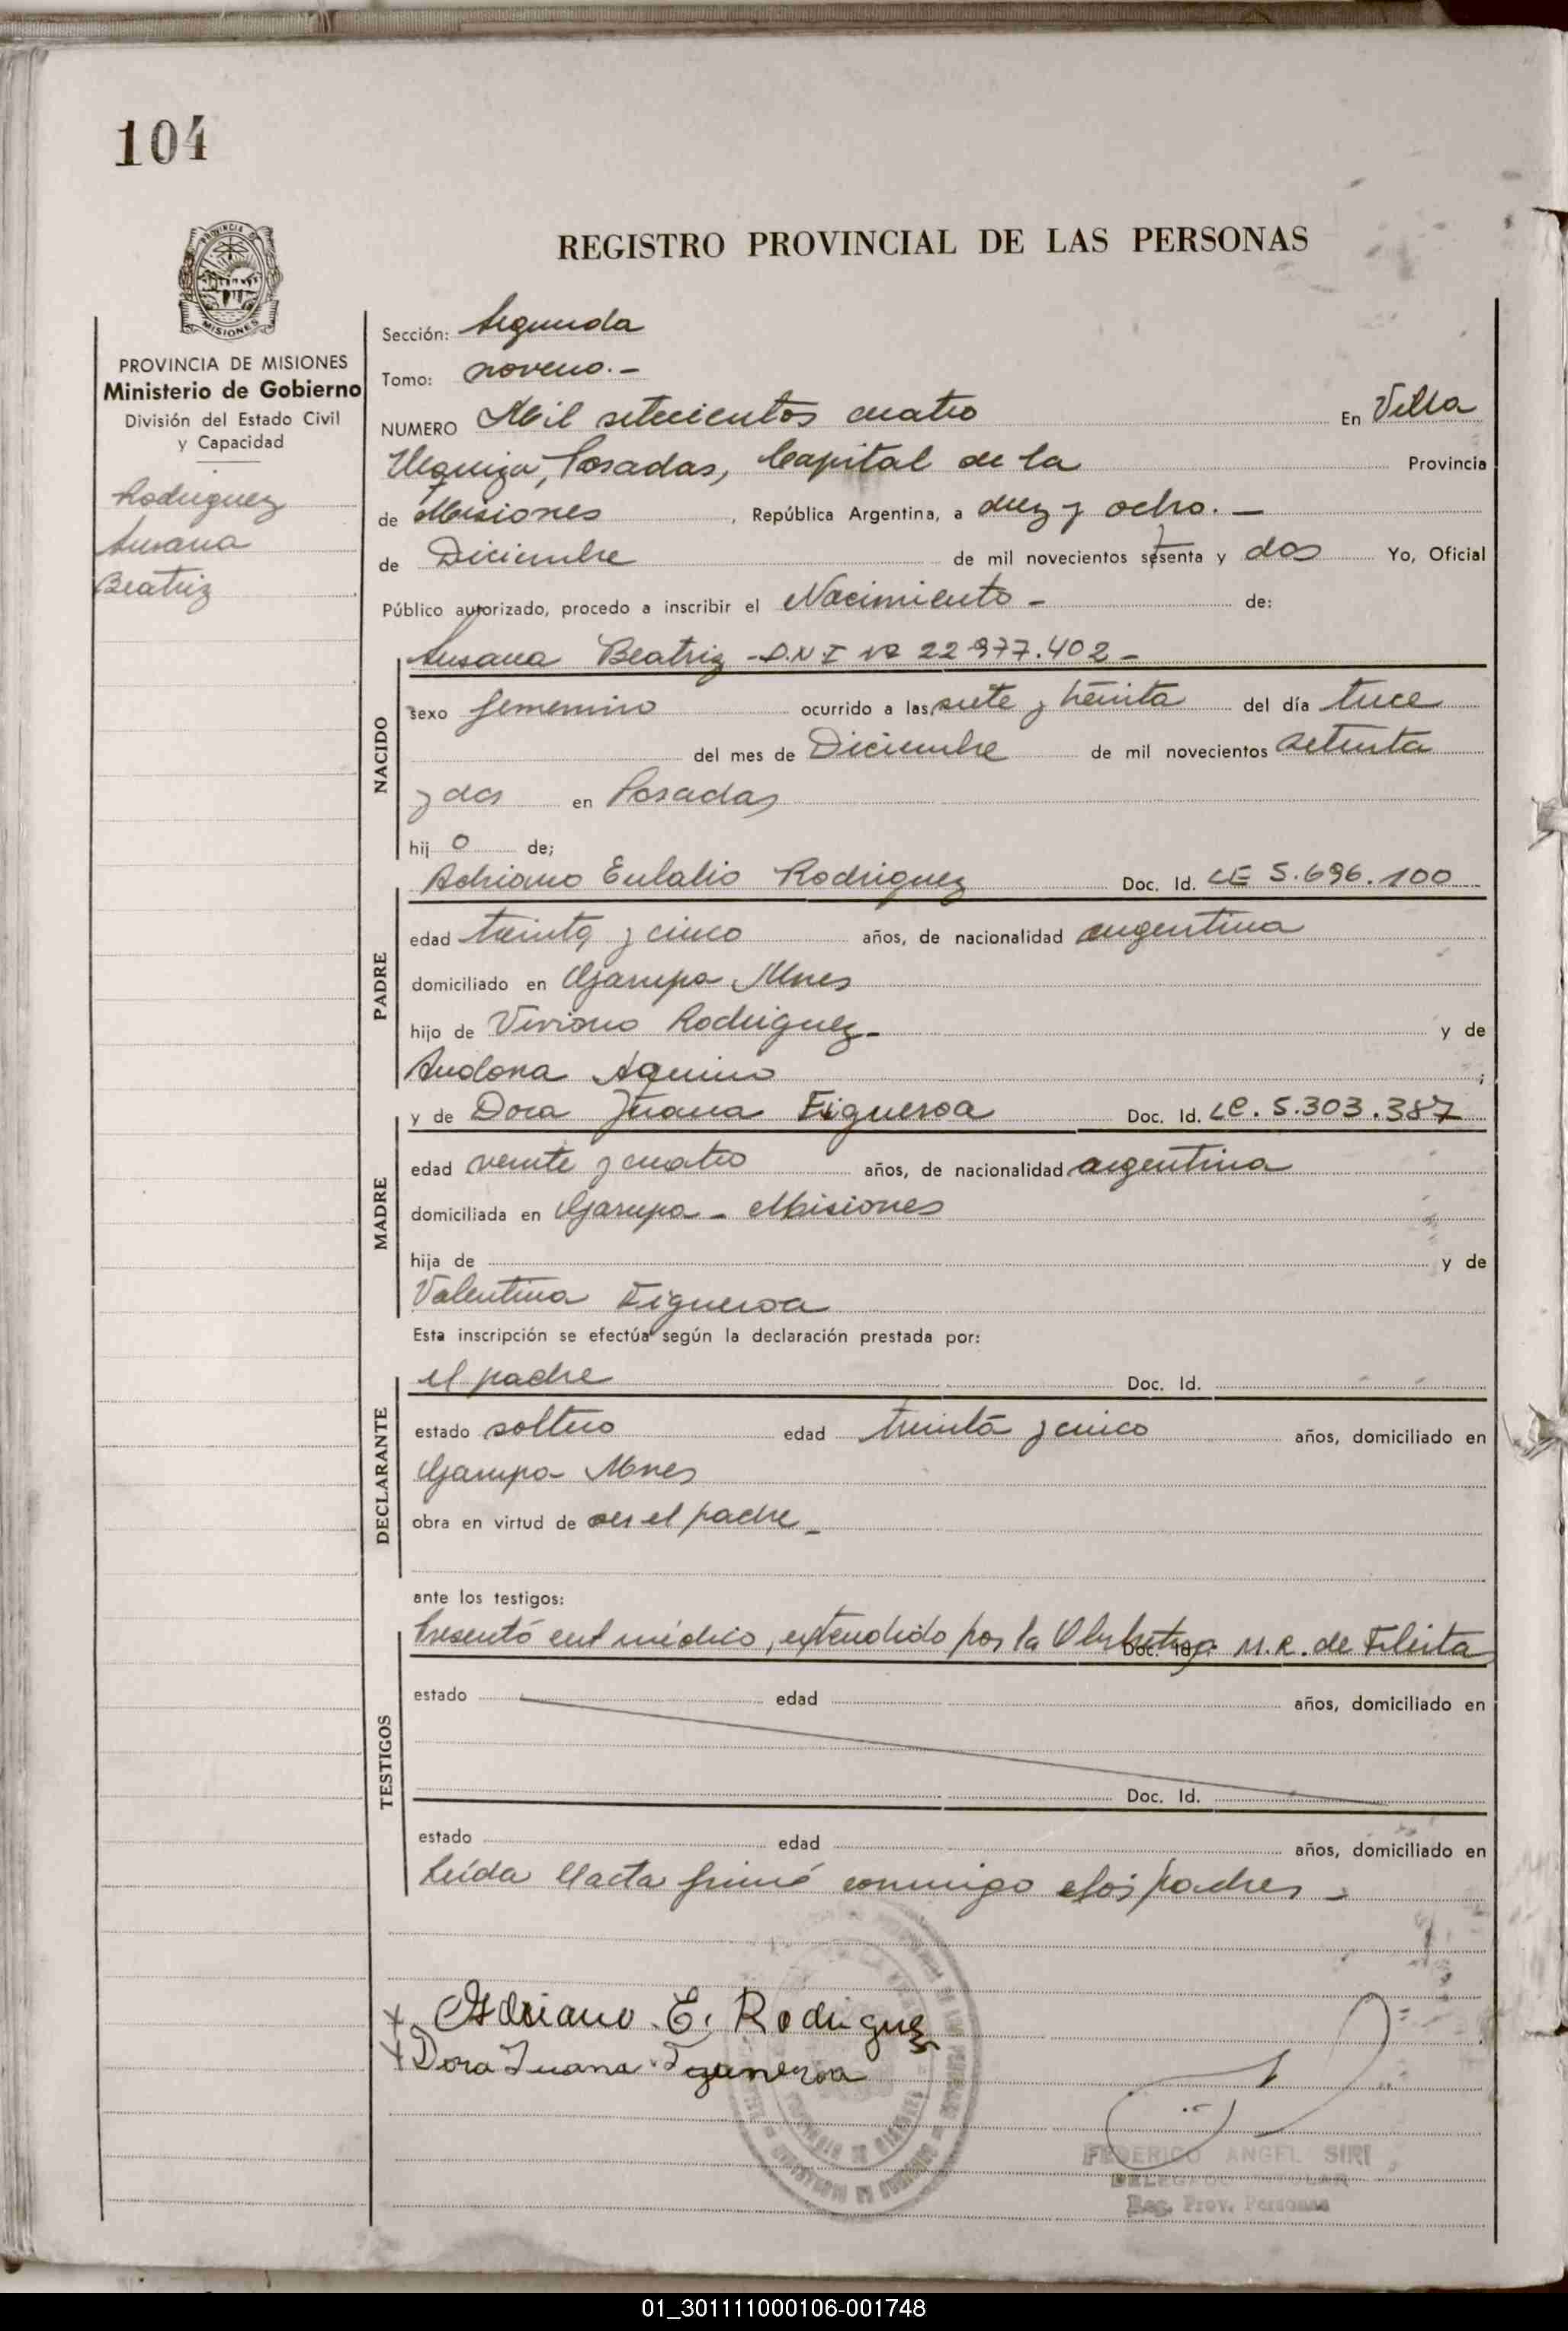 104
REGISTRO PROVINCIAL DE LAS PERSONAS
PROVINCIA DE
MISIONES
PROVINCIA DE MISIONES
Ministerio de Gobierno
División del Estado Civil
y Capacidad
Rodriguez
Susana
Beatriz
Sección: Segunda
Tomo: noveno.-
NUMERO Mil setecientos cuatro En Villa
Urquiza, Posadas, Capital de la Provincia
de Misiones, República Argentina, a diez y ocho.-
de Diciembre de mil novecientos setenta y dos Yo, Oficial
Público autorizado, procedo a inscribir el Nacimiento - de:
Susana Beatriz - D.N I Nº 22.977.402-
NACIDO
sexo femenino ocurrido a las siete y treinta del día trece
del mes de Diciembre de mil novecientos setenta
y dos en Posadas
hij o de;
Adriano Eulalio Rodriguez Doc. Id. LE 5.696.100
PADRE
edad treinta y cinco años, de nacionalidad argentina
domiciliado en Garupa Mnes
hijo de Viviano Rodriguez- y de
Aquino ;
y de Dora Juana Figueroa Doc. Id. LC. 5.303.387
MADRE
edad veinte y cuatro años, de nacionalidad argentina
domiciliada en Garupa - Misiones
hija de y de
Valentina Figueroa
Esta inscripción se efectúa según la declaración prestada por:
el padre Doc. Id.
DECLARANTE
estado soltero edad treinta y cinco años, domiciliado en
Garupa Mnes
obra en virtud de ser el padre -
ante los testigos:
Presentó cert médico, extendido por la Obstetra M.R. de Fleita
Doc. Id.
TESTIGOS
estado edad años, domiciliado en
Doc. Id.
estado edad años, domiciliado en
Leída el acta firmó conmigo los padres -
x Adriano E. Rodriguez
x Dora Juana Figueroa
FEDERICO ANGEL SIRI
DELEGADO TITULAR
Reg. Prov. Personas
01_301111000106-001748